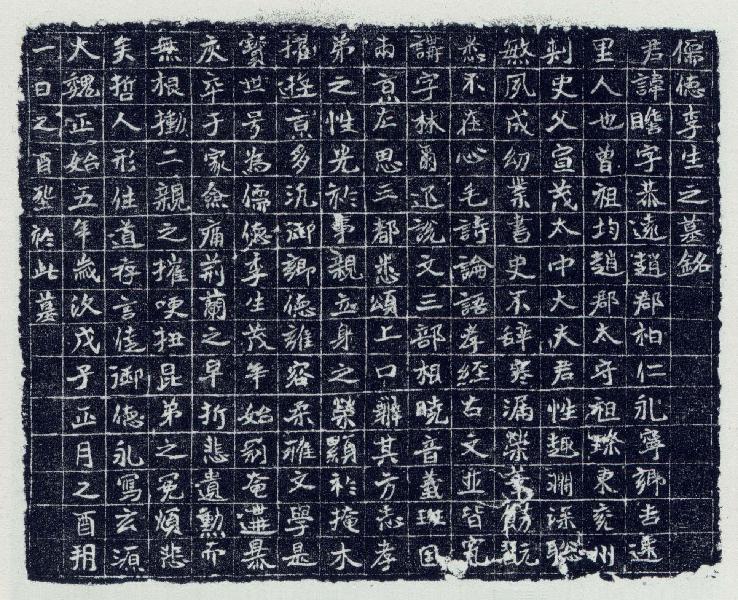 儒德李生之墓銘
君諱瞻字恭遠趙郡柏仁永寧鄉吉遷
里人也曾祖均趙郡太守祖璨東兗州
刺史父宣茂太中大夫君性趣淵深聡
慜夙成幼業書史不辞寒漏榮飾翫
悉不在心毛詩論語孝經古文並皆究
講字林爾迩說文三部相曉音義班固
兩京左思三都悉頌上口辯其方志孝
弟之性光於事親立身之榮顯於掩木
擢遊京多流御卿德誰容柔雅文學是
寶世号為儒德李生茂年始奄遘暴
疾卒于家僉痛荊蘭之早折悲遺勲而
無根二親之摧哽扭昆弟之冤煩悲
矣哲人形往道存言佳御德永寫玄源
大魏正始五年歲次戊子正月之酉朔
一日之酉塟於此墓